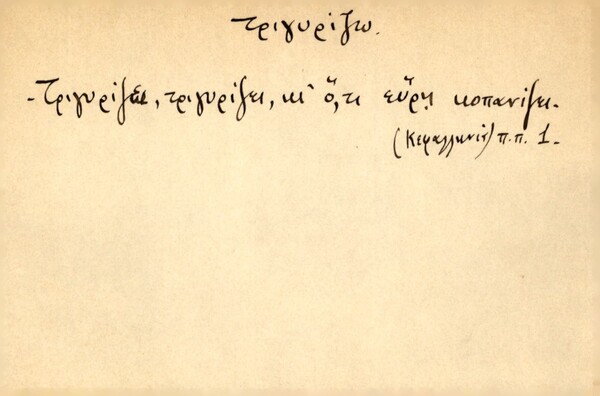 τριγυρίζω.
- Τριγυρίζει, τριγυρίζει, κι' ὅ,τι εὕρῃ κοπανίζει.
(Κεφαλλωνιά) π.π. 1.